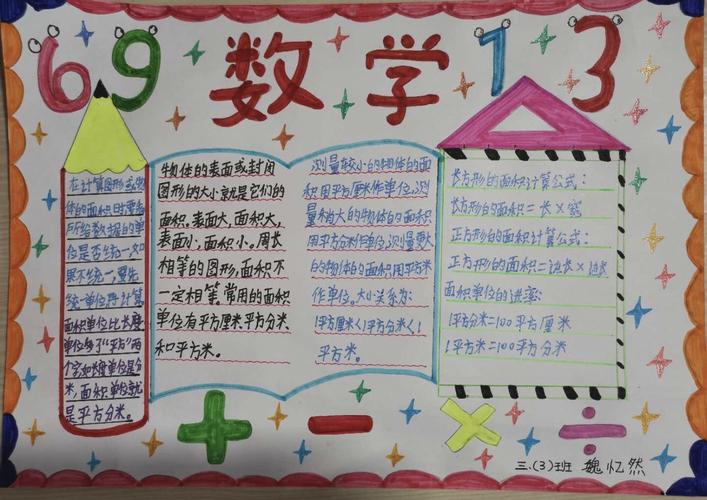 69 数学 13
在计算图形或物
体的面积时要看
所给数据的单
位是否统一,如
果不统一,要先
统一单位再计算
面积单位比长度
单位多了“平方”两
个字,如长度单位是分
米,面积单位就
是平方分米。
物体的表面或封闭
图形的大小就是它们的
面积,表面大,面积大,
表面小,面积小。周长
相等的图形,面积不
一定相等.常用的面积
单位有平方厘米.平方分米
和平方米。
测量较小的物体的面
积用平方厘米作单位,测
量稍大的物体的面积
用平方分米作单位,测量
的物体的面积用平方米
作单位。大小关系为:
1平方厘米<1平方分米<1
平方米。
长方形的面积计算公式:
长方形的面积=长×宽
正方形的面积计算公式:
正方形的面积=边长×边长
面积单位的进率:
1平方分米=100平方厘米
1平方米=100平方分米
+ − × ÷
三.(3)班 魏忆然